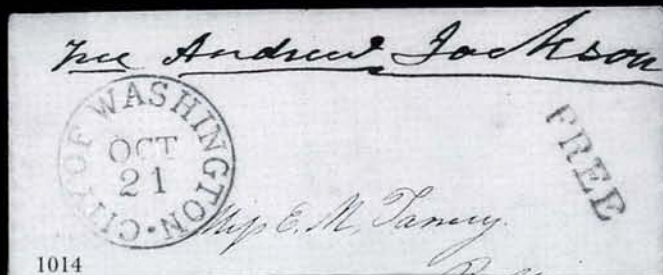 Free Andrew Jackson
CITY OF WASHINGTON
OCT
21
FREE
Miss E. M. Taney.
1014